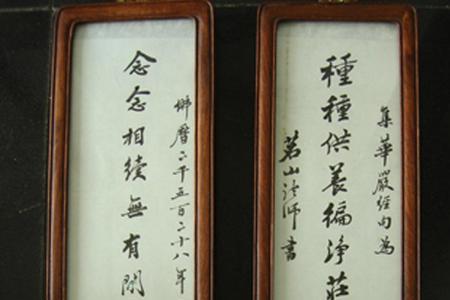 集華嚴經句為
種種供養徧淨莊
茗山法師書
佛曆二千五百二十八年
念念相續無有間